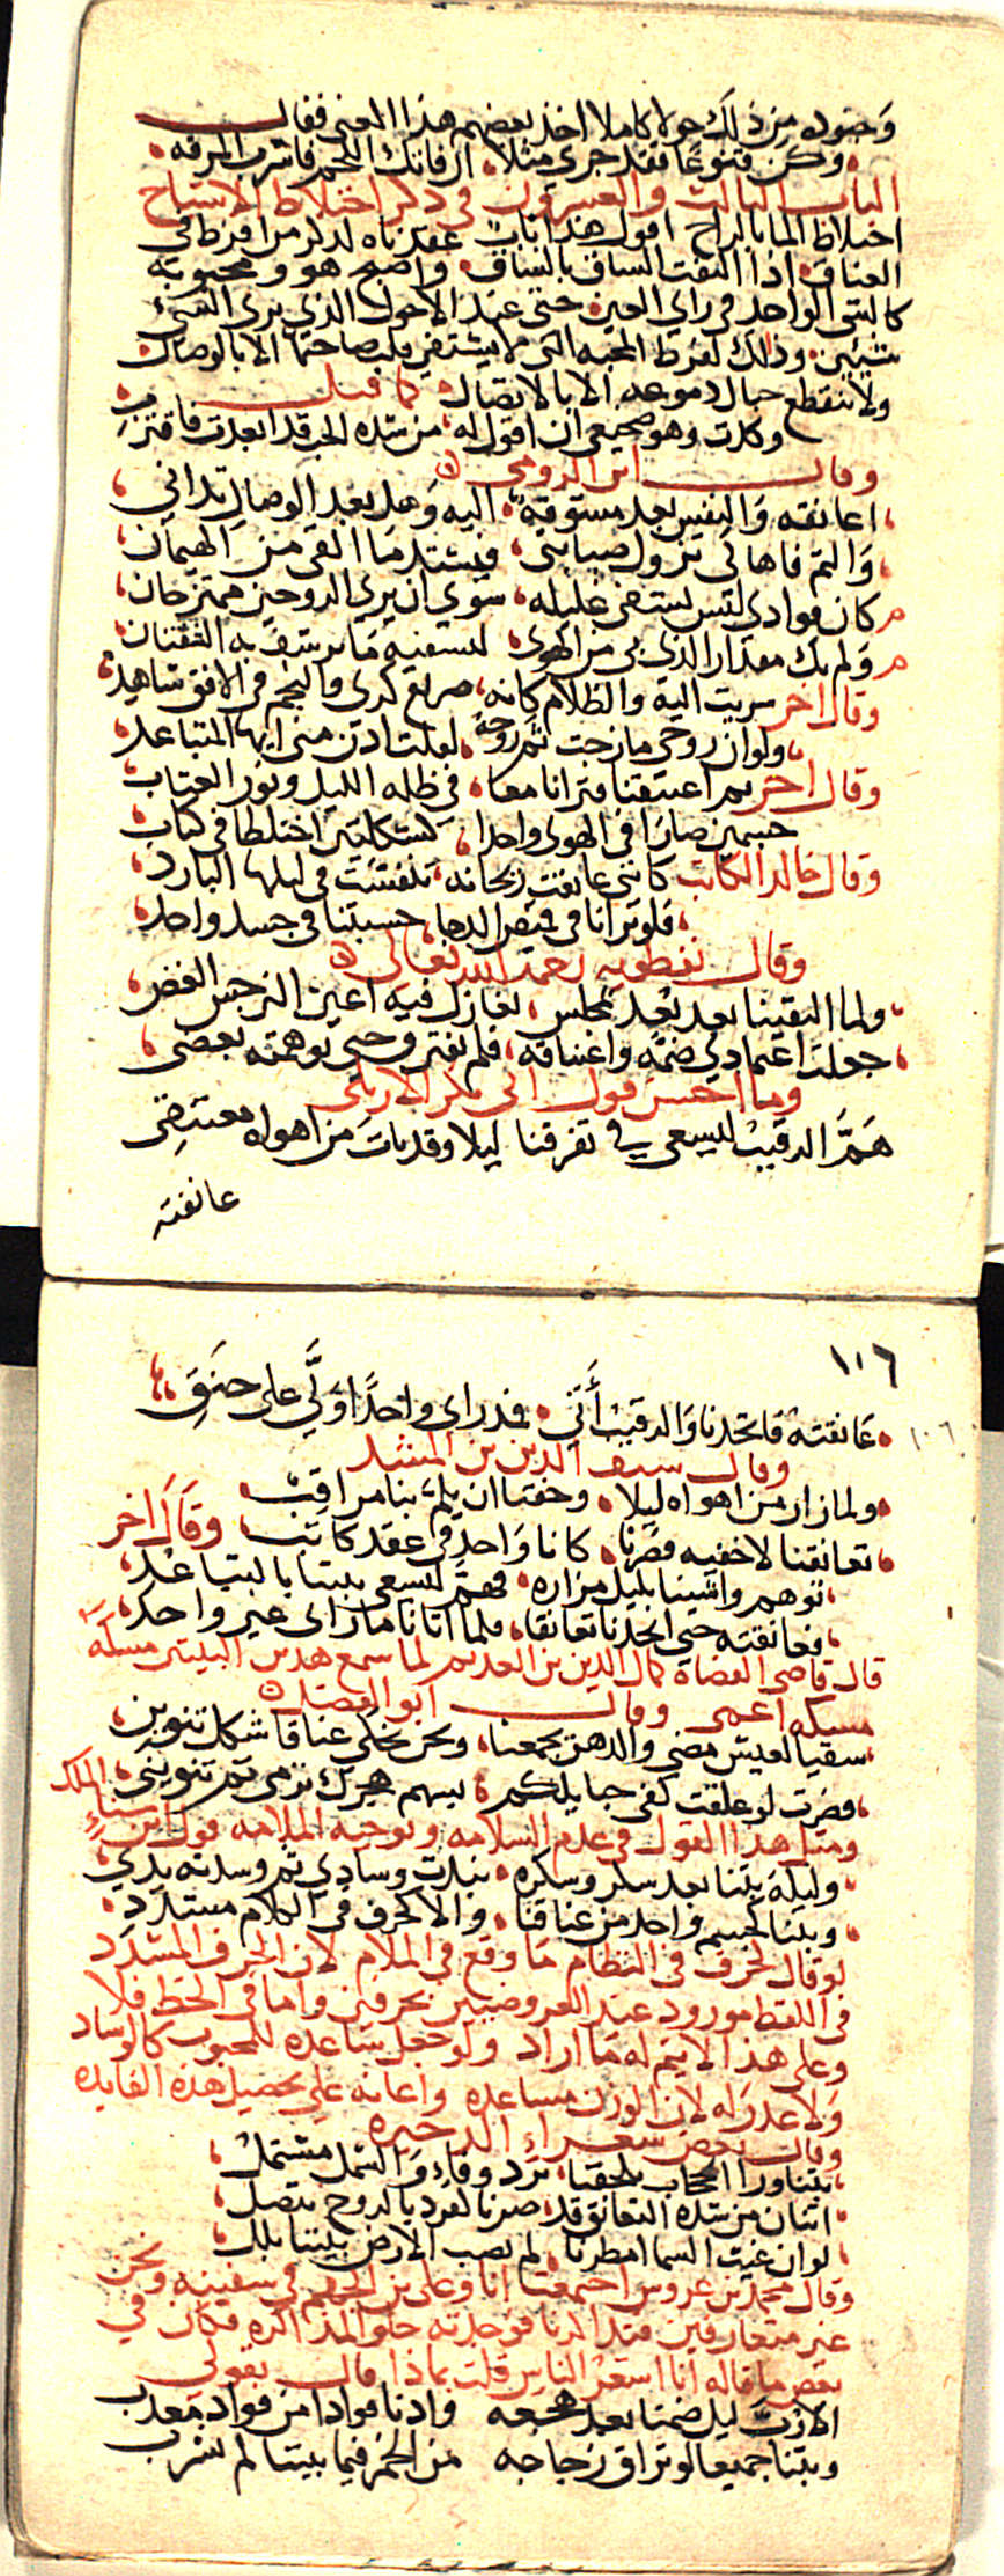 وحصوله من ذلك حولا كاملا اخذ بعضهم هذا المعنى فقال
وكن قنوعا فقد جرى مثلا ان فاتك اللحم فاشرب المرقه
الباب الثالث والعشرون في ذكر اختلاط الاشباح
اختلاط الما بالراح اقول هذا باب عقدناه لذكر من افرط في
العناق اذا التفت الساق بالساق واصبح هو ومحبوبه
كالشي الواحد في راي العين حتى عند الاحول الذي يرى الشيء
شيئين وذلك لفرط المحبه التي لا يشتفي قلب صاحبها الا بالوصال
ولا تنقطع حبال دموعه الا بالاتصال كما قيل
وكدت وهو ضجيعي ان اقول له من شدة الحب قد ابعدت فاقترب
وقال ابن الرومي
اعانقه والنفس بعد مشوقة اليه وهل بعد الوصال تداني
والثم فاها كي تزول صبابتي فيشتد ما القى من الهيمان
كان فوادي ليس يشفى غليله سوى ان يرى الروحين ممتزجان
ولم يك مقدار الذي بي من الهوى ليشفيه ما ترشف به الشفتان
وقال اخر سريت اليه والظلام كانه صريع كرى والنجم في الافق شاهد
ولو ان روحي مازجت ثم روحه لقلت ادن مني ايها المتباعد
وقال اخر ثم اعتنقنا فترانا معا في ظلة الليل ونور العتاب
جسمين صارا في الهوى واحدا كشكلتين اختلطا في كتاب
وقال خالد الكاتب كانني عانقت ريحانه تنفست في ليلها البارد
فلو ترانا في قميص الدجا حسبتنا في جسد واحد
وقال نفطويه رحمه الله تعالى
ولما التقينا بعد بعد بمجلس نغازل فيه اعين النرجس الغض
جعلت اعتمادي ضمه واعتناقه فلم نفترق حتى توهمته بعضي
وما احسن قول ابي بكر الاربلي
هم الرقيب ليسعى في تفرقنا ليلا وقد بات من اهوى معتنقي
عانقته
١٠٦
عانقته فاتحدنا والرقيب أتى فمذ راى واحدا ولّى على حنق
وقال سيف الدين بن المشد
ولما زار من اهواه ليلا وخفنا ان يلم بنا مراقب
تعانقنا لاخفيه فصرنا كانا واحد في عقد كاتب وقال اخر
توهم واشينا بليل مزاره فهم ليسعى بيننا بالتباعد
فعانقته حتى اتحدنا تعانقا فلما اتانا ما راى غير واحد
قال قاضي القضاة كمال الدين بن العديم لما سمع هذين البيتين مسكه
مسكه اعمى وقال ابو الفضل
سقيا لعيش مضى والدهر يجمعنا ونحن نحكي عناقا شكل تنوين
فصرت لو علقت كفي حبايلكم بسهم هجرك ترمى ثم تنويني
ومثل هذا القول في عدم السلامه وتوجيه الملامه قول ابن سنا الملك
وليلة بتنا بعد سكر وسكره نبذت وسادي ثم وسدته يدي
وبتنا كجسم واحد من عناقنا والا كحرف في الكلام مشدد
لو قال لحرف في النظام ما وقع في الملام لان الحرف المشدد
في اللفظ موزود عند العروضيين بحرفين واما في الخط فلا
وعلى هذا لا يتم له ما اراد ولو جعل ساعده للمحبوب كالوساد
ولا عذر له لان الوزن مساعده واعانه على تحصيل هذه الفايده
وقال بعض شعراء الذخيره
بتنا ورا الحجاب يلحفنا برد وفاء والشمل مشتمل
اثنان من شدة التعانق قد صرنا لفرد بالروح متصل
لو ان غيث السما امطرنا لم يصب الارض بيننا بلل
وقال محمد بن عروس اجتمعت انا وعلي بن الجهم في سفينه ونحن
غير متعارفين فتذاكرنا فوجدته حلو المذاكره فكان في
بعض ما قاله انا اشعر الناس قلت بماذا قال بقولي
الا رب ليل ضمنا بعد هجعه وادنا فوادا من فواد معذب
وبتنا جميعا لو تراق زجاجه من الخمر فيما بيننا لم تسرب